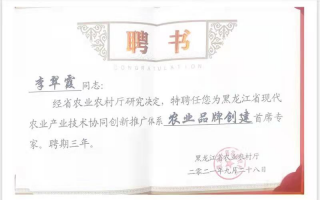 聘书
CONGRATULATION
李翠霞同志：
经省农业农村厅研究决定，特聘任您为黑龙江省现代
农业产业技术协同创新推广体系农业品牌创建首席专
家。聘期三年。
黑龙江省农业农村厅
二零二一年九月二十八日